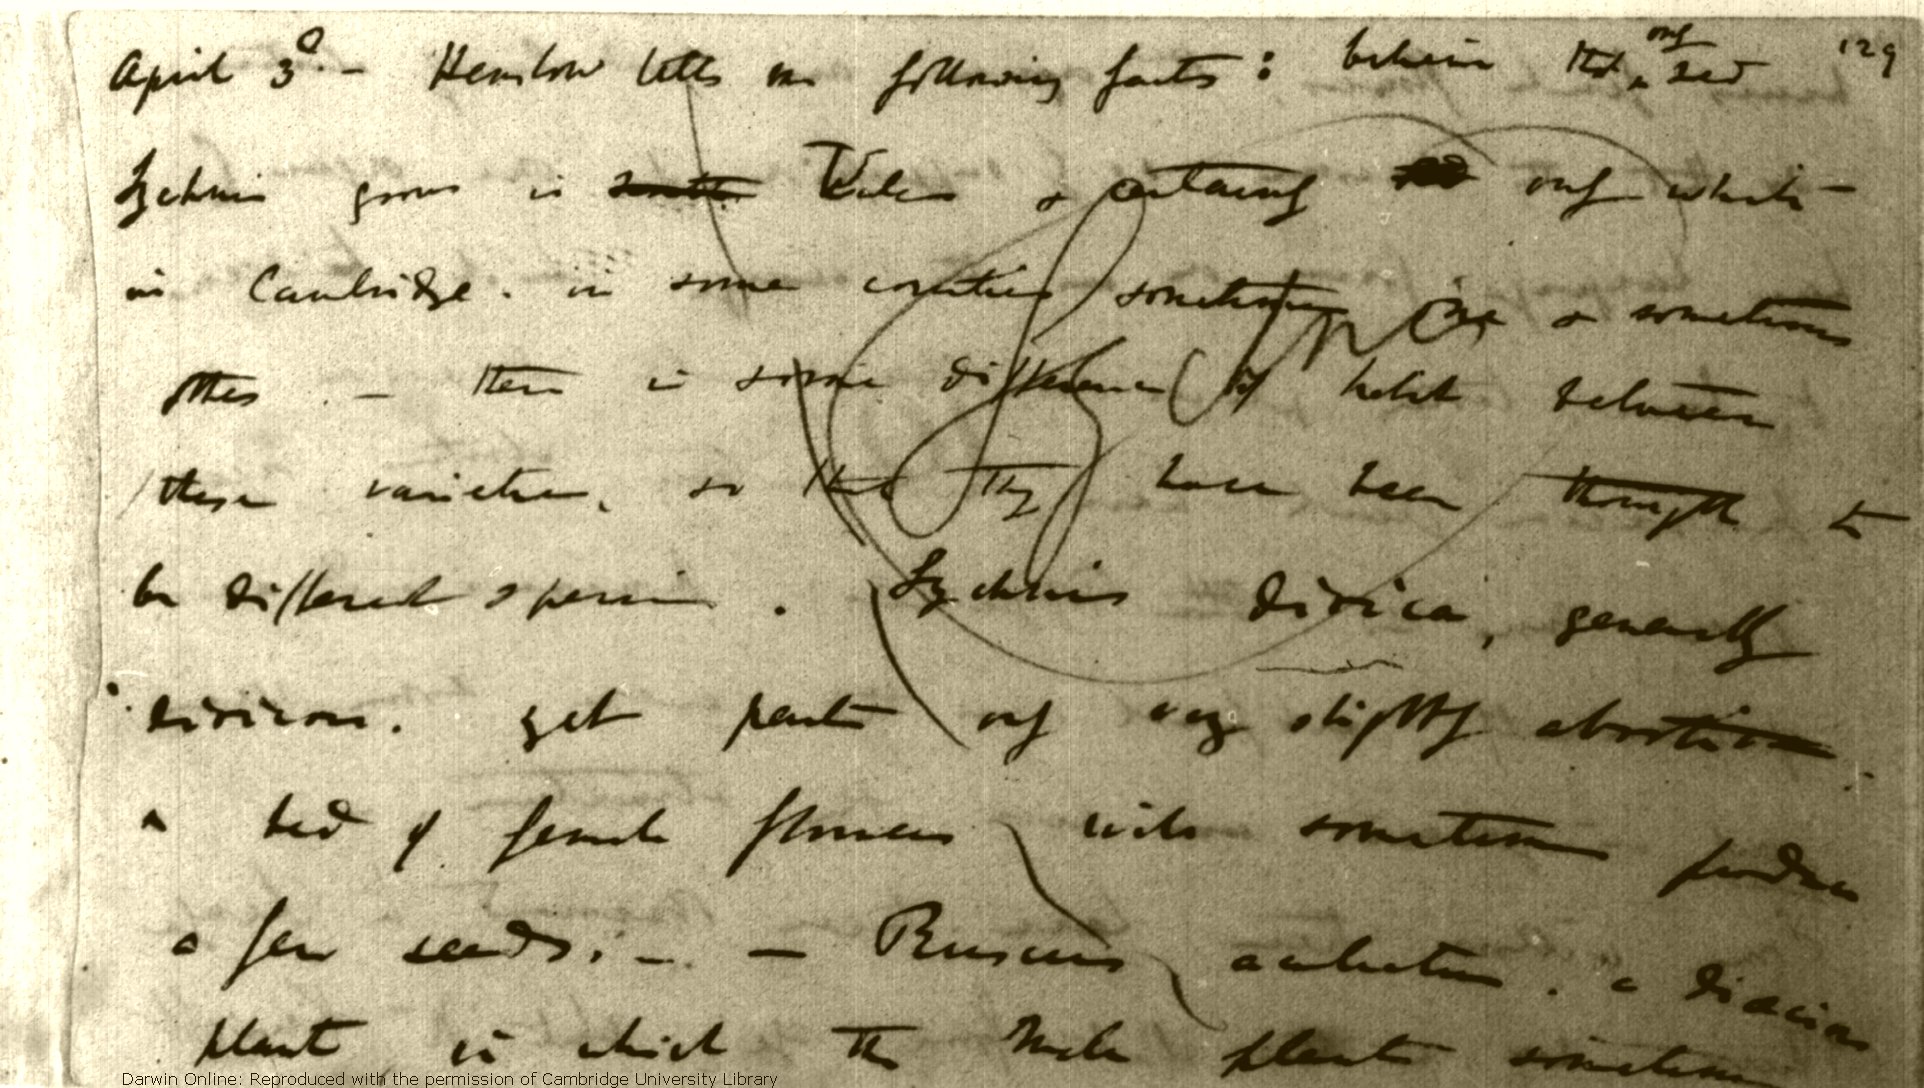 April 3d. — Henslow tells me following facts: believes that only red 129
Lychnis grows in Wales & certainly only white —
in Cambridge. in some counties sometimes one & sometimes
other — there is some difference of habit between
these varieties, so that they have been thought to
be different species. Lychnis dioica, generally
dioicous. yet parts only very slightly abortive.
a bed of female flowers will sometimes produce
a few seeds. — — Ruscus aculeatus. a dioecious
plant in which the Male plant sometimes
Darwin Online: Reproduced with the permission of Cambridge University Library